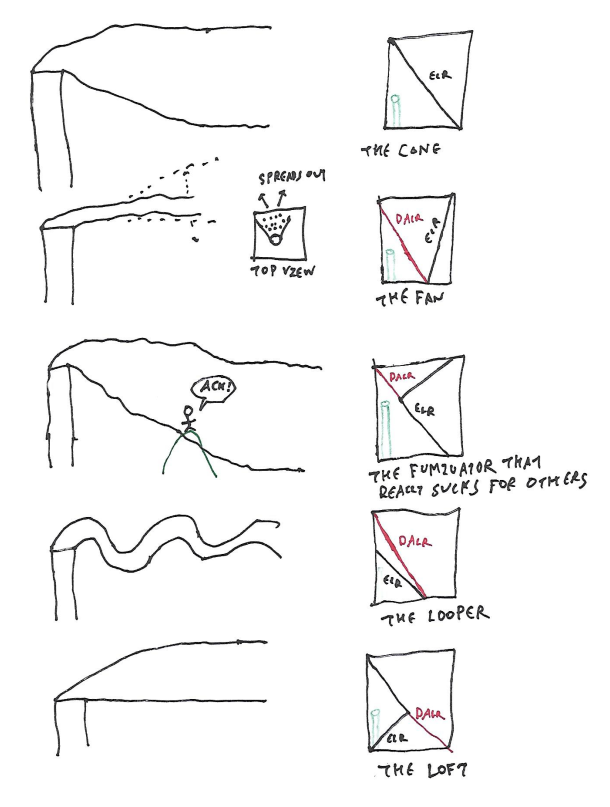 ELR
THE CONE
SPREADS OUT
DALR
ELR
TOP VIEW
THE FAN
ACK!
DALR
ELR
THE FUMIGATOR THAT
REALLY SUCKS FOR OTHERS
DALR
ELR
THE LOOPER
DALR
ELR
THE LOFT